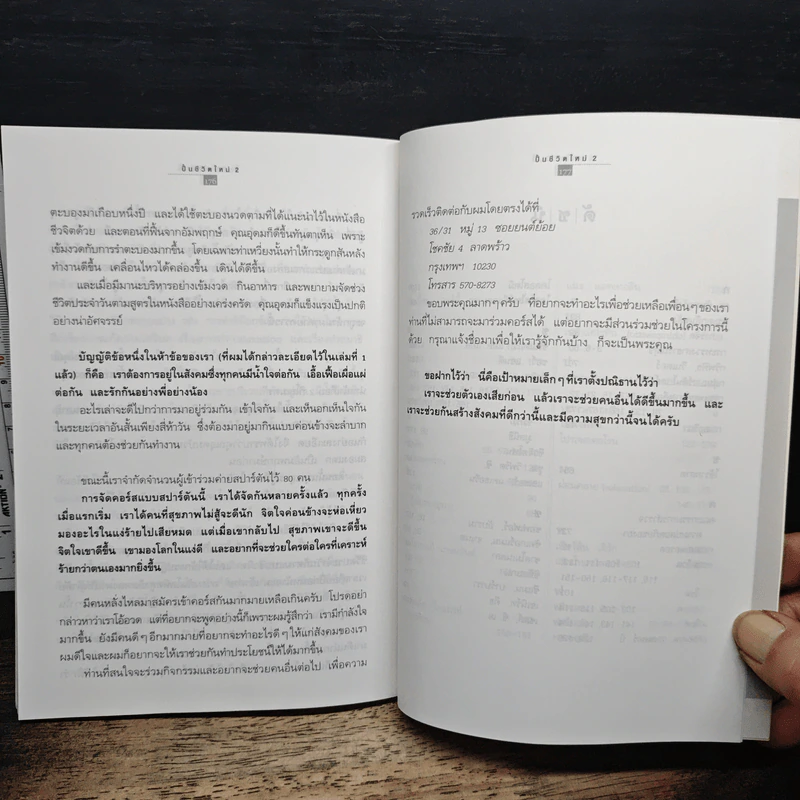 ปั้นชีวิตใหม่ 2
176
ตะบองมาเกือบหนึ่งปี และได้ใช้ตะบองนวดตามที่ได้แนะนำไว้ในหนังสือ
ชีวจิตด้วย และตอนที่ฟื้นจากอัมพฤกษ์ คุณอุดมก็ดีขึ้นทันตาเห็น เพราะ
เข้มงวดกับการรำตะบองมากขึ้น โดยเฉพาะท่าเหวี่ยงนั้นทำให้กระดูกสันหลัง
ทำงานดีขึ้น เคลื่อนไหวได้คล่องขึ้น เดินได้ดีขึ้น
และเมื่อมีมานะบริหารอย่างเข้มงวด กินอาหาร และพยายามจัดช่วง
ชีวิตประจำวันตามสูตรในหนังสืออย่างเคร่งครัด คุณอุดมก็แข็งแรงเป็นปกติ
อย่างน่าอัศจรรย์
บัญญัติข้อหนึ่งในห้าข้อของเรา (ที่ผมได้กล่าวละเอียดไว้ในเล่มที่ 1
แล้ว) ก็คือ เราต้องการอยู่ในสังคมซึ่งทุกคนมีน้ำใจต่อกัน เอื้อเฟื้อเผื่อแผ่
ต่อกัน และรักกันอย่างพี่อย่างน้อง
อะไรเล่าจะดีไปกว่าการมาอยู่ร่วมกัน เข้าใจกัน และเห็นอกเห็นใจกัน
ในระยะเวลาอันสั้นเพียงสี่ห้าวัน ซึ่งต้องมาอยู่มากินแบบค่อนข้างจะลำบาก
และทุกคนต้องช่วยกันทำงาน
ขณะนี้เราจำกัดจำนวนผู้เข้าร่วมค่ายสปาร์ตันไว้ 80 คน
การจัดคอร์สแบบสปาร์ตันนี้ เราได้จัดกันหลายครั้งแล้ว ทุกครั้ง
เมื่อแรกเริ่ม เราได้คนที่สุขภาพไม่สู้จะดีนัก จิตใจค่อนข้างจะห่อเหี่ยว
มองอะไรในแง่ร้ายไปเสียหมด แต่เมื่อเขากลับไป สุขภาพเขาจะดีขึ้น
จิตใจเขาดีขึ้น เขามองโลกในแง่ดี และอยากที่จะช่วยใครต่อใครที่เคราะห์
ร้ายกว่าตนเองมากยิ่งขึ้น
มีคนหลั่งไหลมาสมัครเข้าคอร์สกันมากมายเหลือเกินครับ โปรดอย่า
กล่าวหาว่าเราโอ้อวด แต่ที่อยากจะพูดอย่างนี้ก็เพราะผมรู้สึกว่า เรามีกำลังใจ
มากขึ้น ยังมีคนดีๆ อีกมากมายที่อยากจะทำอะไรดีๆ ให้แก่สังคมของเรา
ผมดีใจและผมก็อยากจะให้เราช่วยกันทำประโยชน์ให้ได้มากขึ้น
ท่านที่สนใจจะร่วมกิจกรรมและอยากจะช่วยคนอื่นต่อไป เพื่อความ
ปั้นชีวิตใหม่ 2
177
รวดเร็วติดต่อกับผมโดยตรงได้ที่
36/31 หมู่ 13 ซอยยนต์ย้อย
โชคชัย 4 ลาดพร้าว
กรุงเทพฯ 10230
โทรสาร 570-8273
ขอบพระคุณมากๆ ครับ ที่อยากจะทำอะไรเพื่อช่วยเหลือเพื่อนๆ ของเรา
ท่านที่ไม่สามารถจะมาร่วมคอร์สได้ แต่อยากจะมีส่วนร่วมช่วยในโครงการนี้
ด้วย กรุณาแจ้งชื่อมาเพื่อให้เรารู้จักกันบ้าง ก็จะเป็นพระคุณ
ขอฝากไว้ว่า นี่คือเป้าหมายเล็กๆ ที่เราตั้งปณิธานไว้ว่า
เราจะช่วยตัวเองเสียก่อน แล้วเราจะช่วยคนอื่นได้ดีขึ้นมากขึ้น และ
เราจะช่วยกันสร้างสังคมที่ดีกว่านี้และมีความสุขกว่านี้จนได้ครับ